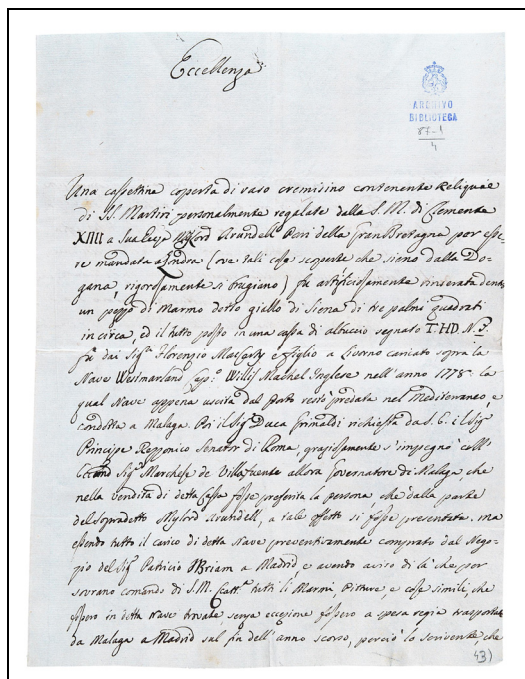 Eccellenza
ARCHIVO
BIBLIOTECA
87-1
4
Una cassettina coperta di raso cremisino contenente Reliquie
di SS. Martiri personalmente regalate dalla S. M. di Clemente
XIIII a Sua Ecc.za Mylord Arundell Pari della Gran Bretagna per esse-
re mandata a Londra (ove tali cose scoperte che sieno dalla Do-
gana, rigorosamente si brugiano) fu artificiosamente rinserrata dentro
un pezzo di Marmo detto giallo di Siena di tre palmi quadrati
in circa, ed il tutto posto in una cassa di albuccio segnato T. HD. N. 
fu dai Sig.ri e figlio a Livorno caricato sopra la
Nave Westmorland Cap.o Willis Machel Inglese nell'anno 1778. la
qual Nave appena uscita dal Porto restò predata nel Mediterraneo, e
condotta a Malaga. Poi il Sig.r Duca Grimaldi richiesto da S. E. il Sig.r
Principe Rezzonico Senator di Roma, graziosamente s'impegnò coll'
Sig.r Marchese de Villafuente allora Governatore di Malaga, che
nella vendita di detta Cassa fosse preferita la persona, che dalla parte
del sopradetto Mylord Arundell, a tale effetto si fosse presentata. ma
essendo tutto il carico di detta Nave preventivamente comprato dal Nego-
zio del Sig.r Patricio a Madrid e avendo aviso di là che per
sovrano comando di S. M. Catt.ca tutti li Marmi, Pitture, e cose simili, che
fossero in detta Nave trovate senza eccezione fossero a spesa regia trasportate
da Malaga a Madrid sul fin dell'anno scorso, perciò lo scrivente, che
43)